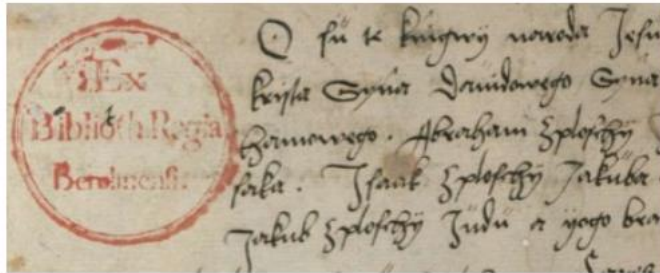 Ex
Biblioth. Regia
Berolinensi.
O su te knigwy naroda Jesu
krista Syna Dawidowego Syna
hamowego. Abraham Zploschy
saka. Isaak Zploschy Jakuba
Jakub Zploschy Judu a yogo bra